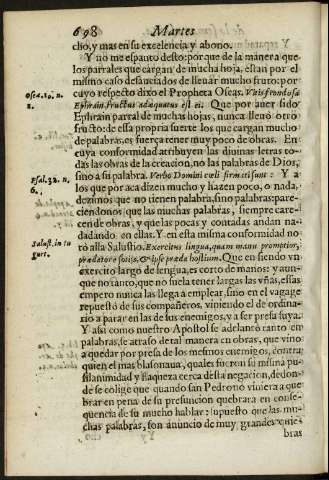 698 Martes
cho, y mas en su excelencia y abono.
Y no me espanto desto: porque de la manera que
los parrales que cargan de mucha hoja, estan por el
mismo caso desauciados de lleuar mucho fruto: por
cuyo respeto dixo el Propheta Oseas. Vitis frondosa
Osea. 10. n.
Ephrain, fructus adæquatus est ei: Que por auer sido
Ephrain parral de muchas hojas, nunca lleuò otro
fructo: de essa propria suerte los que cargan mucho
de palabras, es fuerça tener muy poco de obras. En
cuya conformidad atribuyen las diuinas letras to
das las obras de la creacion, no las palabras de Dios,
sino a su palabra. Verbo Domini cœli firmati sunt: Y a
Psal. 32. n.
6.
los que por acà dizen mucho y hazen poco, o nada,
dezimos que no tienen palabra, sino palabras: pare-
ciendonos que las muchas palabras, siempre care-
cen de obras, y que las pocas y contadas andan na-
dadando en ellas. Y en esta misma conformidad no
tò alla Salustio. Exercitus lingua, quam manu promptior,
Salust. in Iu
gurt.
prædator è socijs, & ipse præda hostium. Que en siendo vn
exercito largo de lengua, es corto de manos: y aun-
que no tanto, que no suela tener largas las vñas, essas
empero nunca las llega à emplear, sino en el vagage
repuesto de sus compañeros, viniendo el de ordina-
rio a parar en las de sus enemigos, y a ser presa suya.
Y assi como nuestro Apostol se adelantò tanto en
palabras, se atraso de tal manera en obras, que vino
a quedar por presa de los mesmos enemigos, contra
quien el mas blasonaua, quales fueron su misma pu-
silanimidad y flaqueza cerca desta negacion, de don-
de se colige que quando san Pedro no viniera a que
brar en pena de su presuncion quebrara en conse-
quencia de su mucho hablar: supuesto que las mu-
chas palabras, son anuncio de muy grandes quie-
bras